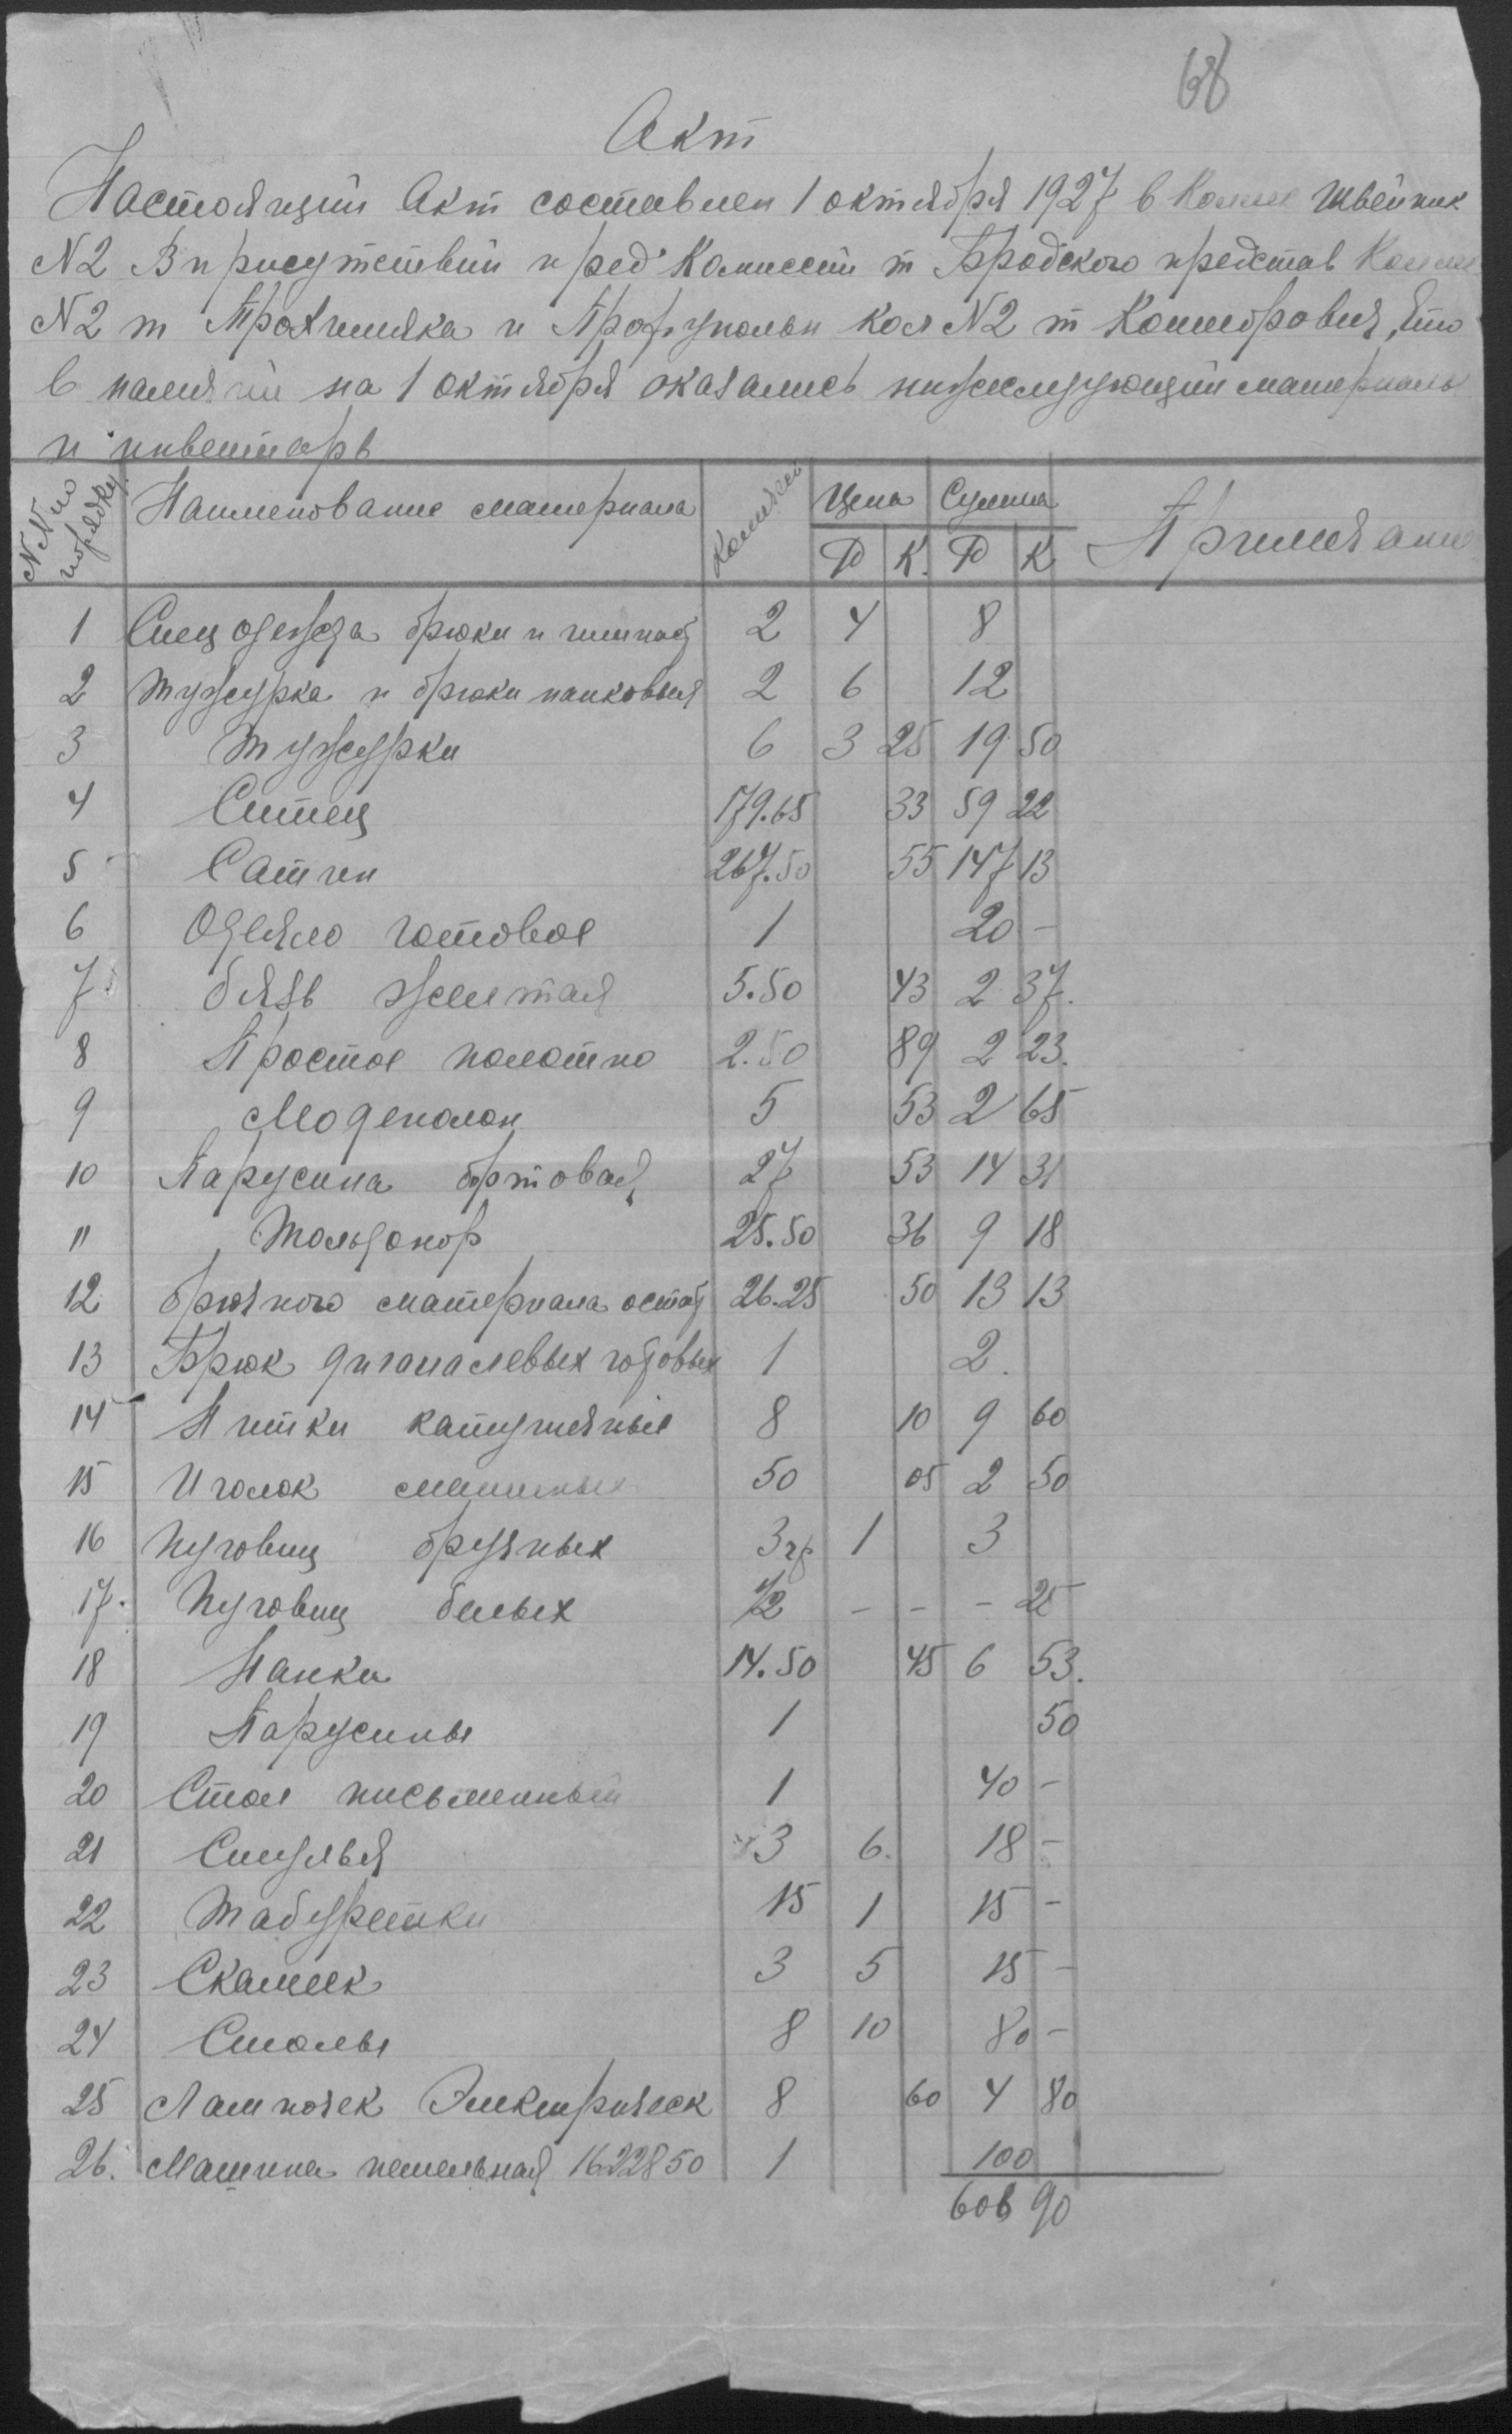 68
Акт
Настоящий Акт составлен 1 октября 1927 в Колле Швейник
N2 В присутствии пред Комиссии т Бродского представ Колле
N2 т и Профуполн Кол N2 т Канторовия, что
в наличии на 1 октября оказались нижеследующии материалы
и инвентарь
NN по порядку Наименование материала Количест Цена Сумма Примечание
Р К. Р К
1 Спецодежда брюки и гимнас 2 4 8
2 Тужурка и брюки нанковыя 2 6 12
3 Тужурки 6 3 25 19 50
4 Ситец 179.65 33 59 22
5 Сатин 267.50 55 147 13
6 Одеяло готовое 1 20 –
7 бязь желтая 5.50 43 2 37.
8 Простое полотно 2.50 89 2 23.
9 Модеполан 5 53 2 65
10 Парусина бортовая 27 53 14 31
11 25.50 36 9 18
12 брючного материала остат 26.25 50 13 13
13 Брюк дигоналевых готовых 1 2.
14 Нитки катушечные 8 10 9 60
15 Иголок машинных 50 05 2 50
16 Пуговиц бручных 3 гр 1 3
17. Пуговиц белых 1/2 – – – 25
18 Нанки 14.50 45 6 53.
19 Парусины 1 50
20 Стол письменный 1 40 –
21 Стулья 3 6. 18 –
22 Табуретки 15 1 15 –
23 Скамеек 3 5 15 –
24 Столы 8 10 80 –
25 Лампочек Электрическ 8 60 4 80
26. Машина петельная 1622850 1 100
606 90